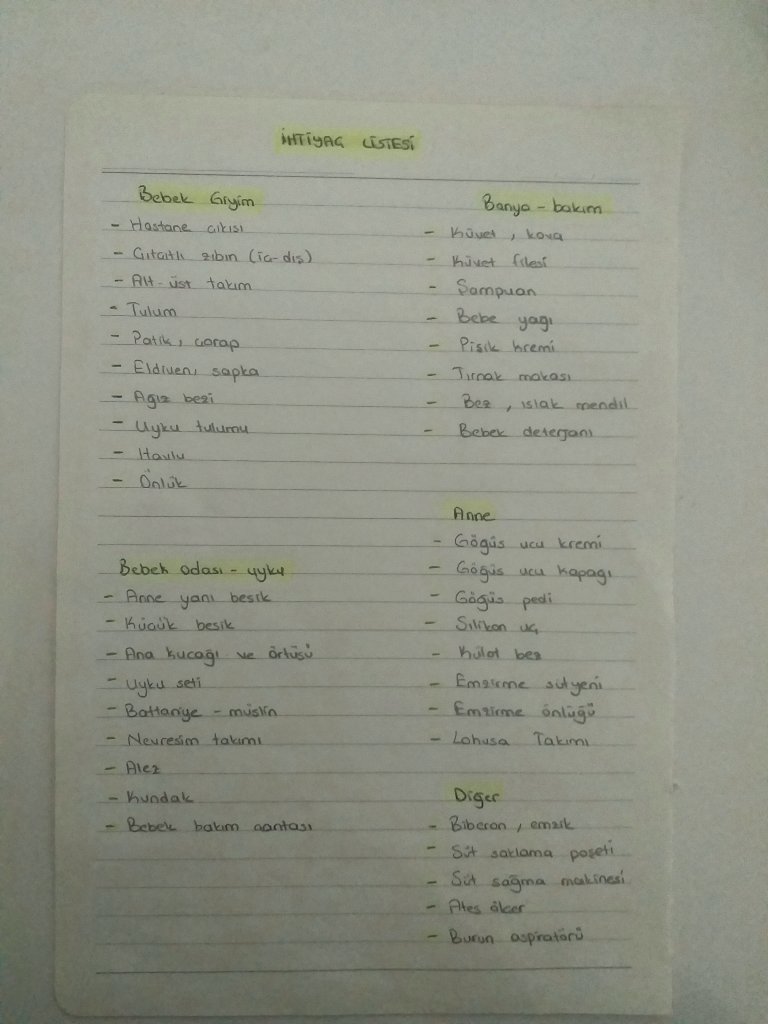 İHTİYAÇ LİSTESİ
Bebek Giyim
- Hastane çıkışı
- Çıtçıtlı zıbın (iç-dış)
- Alt-üst takım
- Tulum
- Patik, çorap
- Eldiven, şapka
- Ağız bezi
- Uyku tulumu
- Havlu
- Önlük
Bebek odası - uyku
- Anne yanı beşik
- Küçük beşik
- Ana kucağı ve örtüsü
- Uyku seti
- Battaniye - müslin
- Nevresim takımı
- Alez
- Kundak
- Bebek bakım çantası
Banyo - bakım
- Küvet, kova
- Küvet filesi
- Şampuan
- Bebe yağı
- Pişik kremi
- Tırnak makası
- Bez, ıslak mendil
- Bebek deterjanı
Anne
- Göğüs ucu kremi
- Göğüs ucu kapağı
- Göğüs pedi
- Silikon uç
- Külot bez
- Emzirme sütyeni
- Emzirme önlüğü
- Lohusa Takımı
Diğer
- Biberon, emzik
- Süt saklama poşeti
- Süt sağma makinesi
- Ateş ölçer
- Burun aspiratörü